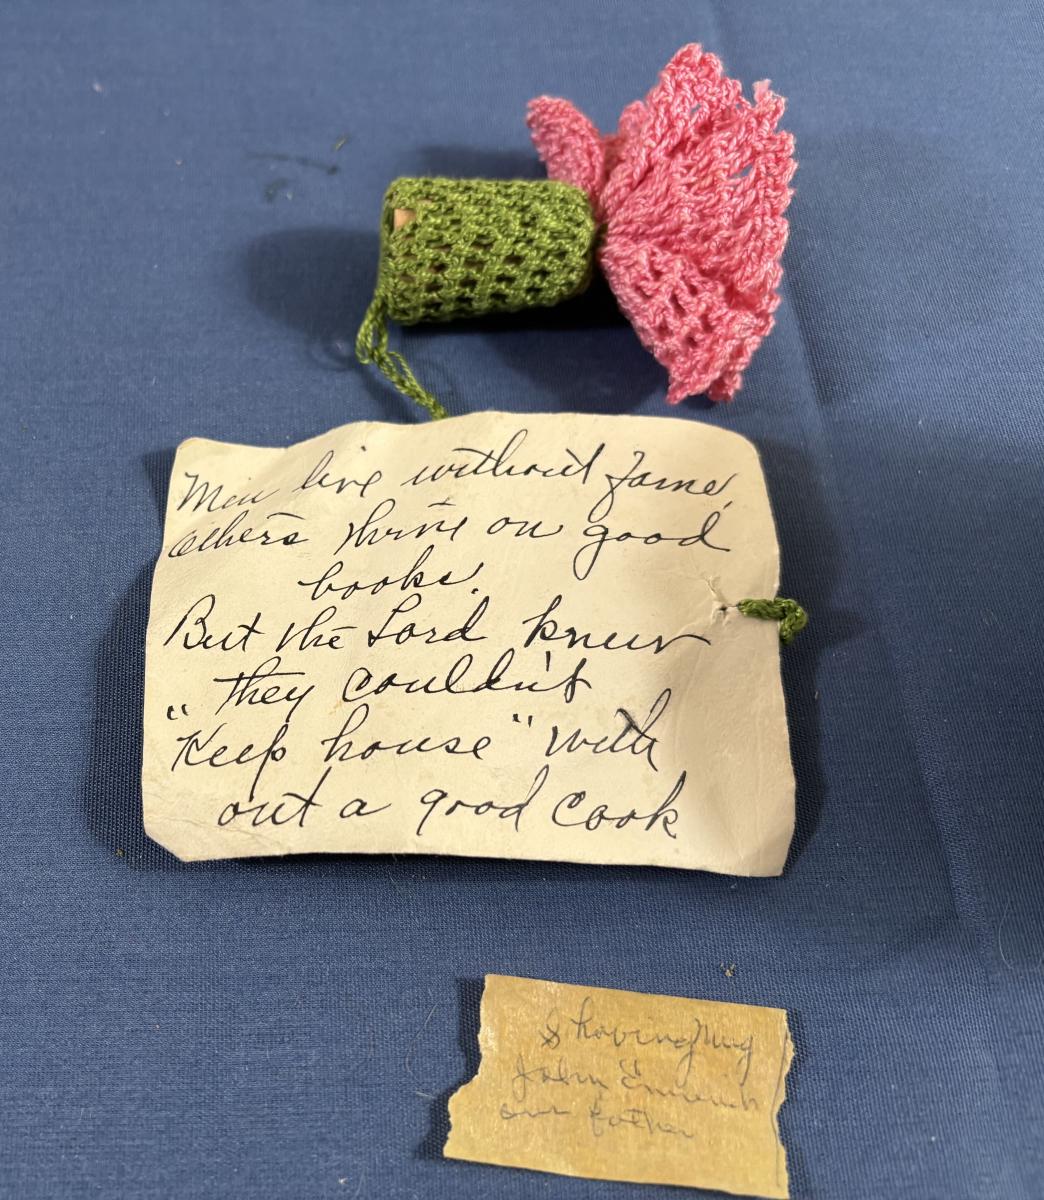 Men live without fame,
others thrive on good
books.
But the Lord knew
"they couldn't
Keep house" with
out a good cook
Shaving Mug
John Emerich
our father